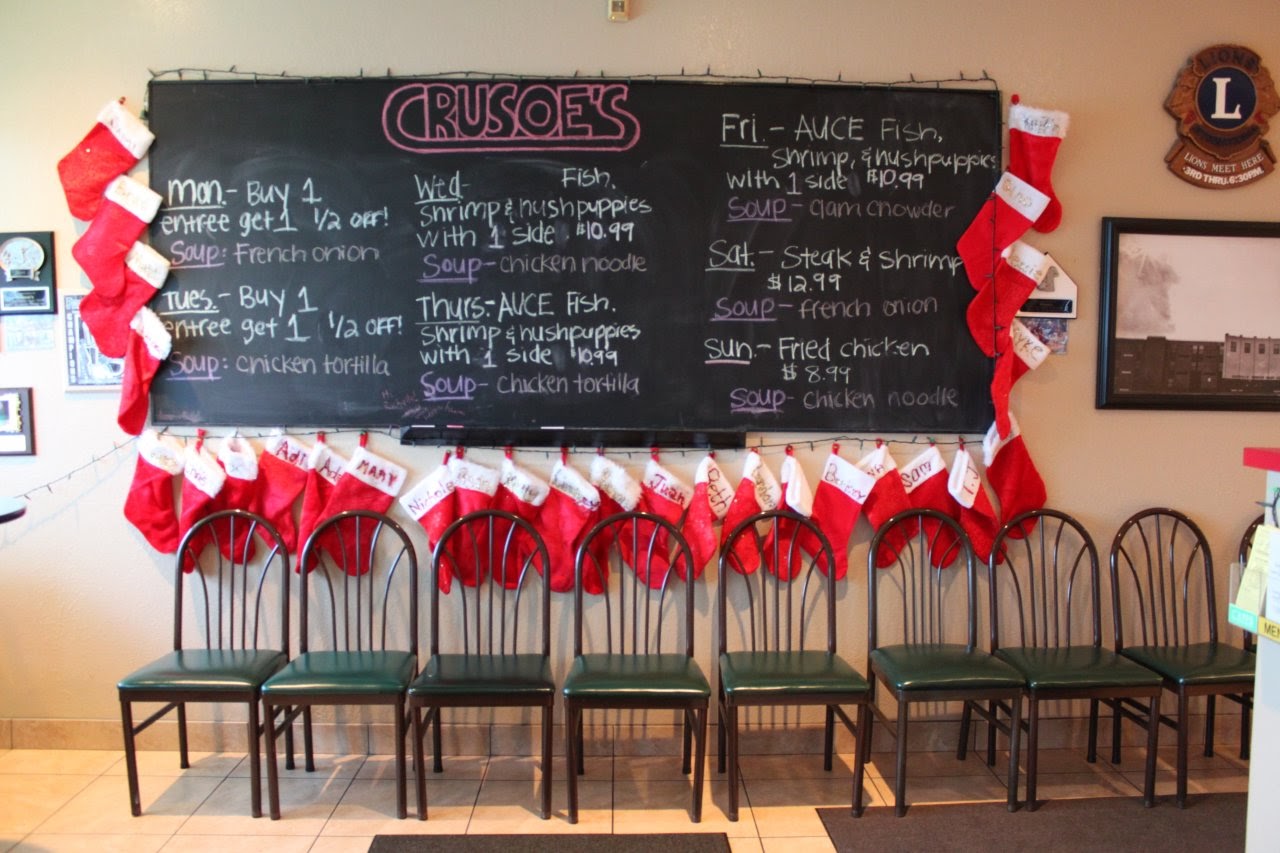 CRUSOE'S
Mon.- Buy 1
entree get 1 1/2 OFF!
Soup: French onion
Tues.- Buy 1
entree get 1 1/2 OFF!
Soup: Chicken tortilla
Wed- Fish.
Shrimp & hushpuppies
with 1 side $10.99
Soup- chicken noodle
Thurs- AUCE Fish.
Shrimp & hushpuppies
with 1 side $10.99
Soup- Chicken tortilla
Fri.- AUCE Fish,
Shrimp, & hushpuppies
with 1 side $10.99
Soup- clam chowder
Sat.- Steak & Shrimp
$12.99
Soup- french onion
Sun.- Fried chicken
$8.99
Soup- chicken noodle
LIONS
L
LIONS MEET HERE
3RD THRU. 6:30PM.
MARY
Nichole
Juan
Beth
Beverly
Sam
T.J.
MEN